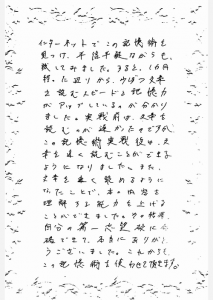 インターネットでこの記憶術を
見つけ、半信半疑ながらも、
試してみました。すると、16日
程たった辺りから、ゆっくり文章
を読むスピードと記憶力
がアップしているのが分かり
ました。実践前は、文章を
読むのが遅かったのですが、
この記憶術実践後は、文
章を速く読むことができる
ようになりました。また、
文章を速く読めるように
なったことで、本の内容を
理解する能力を上げる
ことができました。その結果、
自分の第一志望校に合
格できて、本当にありがと
うございました。これからも、
この記憶術を使わせて頂きます。